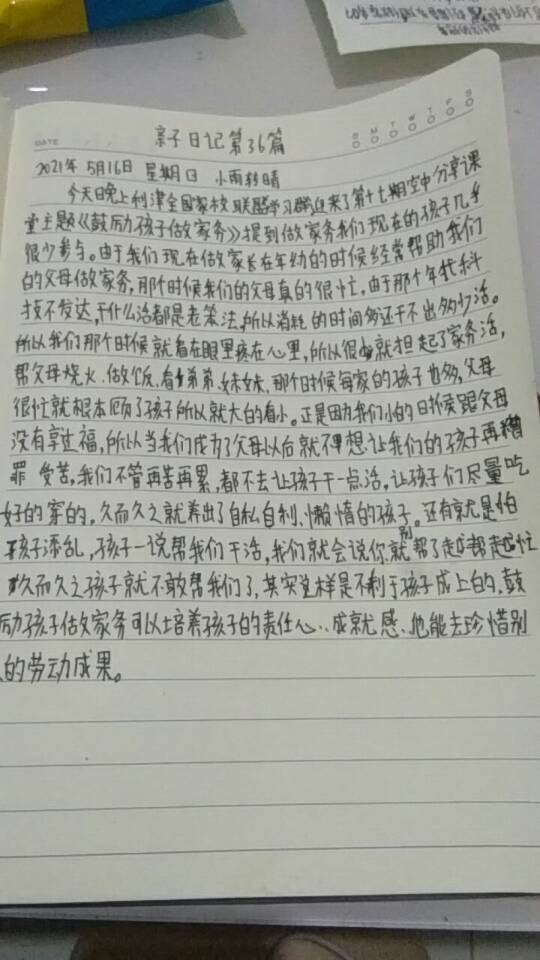 DATE
S M T W T F S
亲子日记第36篇
2021年 5月16日 星期日 小雨转晴
今天日晚上利津全国家校联盟学习群迎来了第十七期空中分享课
堂主题《鼓励孩子做家务》提到做家务我们现在的孩子几乎
很少参与。由于我们现在做家长在年幼的时候经常帮助我们
的父母做家务,那个时候我们的父母真的很忙.由于那个年代科
技不发达,干什么活都是老笨法,所以消耗的时间多还干不出多少活。
所以我们那个时候就看在眼里疼在心里,所以很就担起了家务活,
帮父母烧火.做饭.看弟弟、妹妹,那个时候每家的孩子也多,父母
很忙就根本顾了孩子所以就大的看小。正是因为我们小的时候跟父母
没有享过福,所以当我们成为了父母以后就不想让我们的孩子再
罪 受苦,我们不管再苦再累,都不去让孩子干一点活.让孩子们尽量吃
好的穿的,久而久之就养出了自私自利、懒惰的孩子。还有就是怕
孩子添乱,孩子一说帮我们干活,我们就会说你就别帮了越帮越忙
久而久之孩子就不敢帮我们了,其实这样是不利于孩子成上的.鼓
励孩子做家务可以培养孩子的责任心..成就感.他能去珍惜别
的劳动成果。